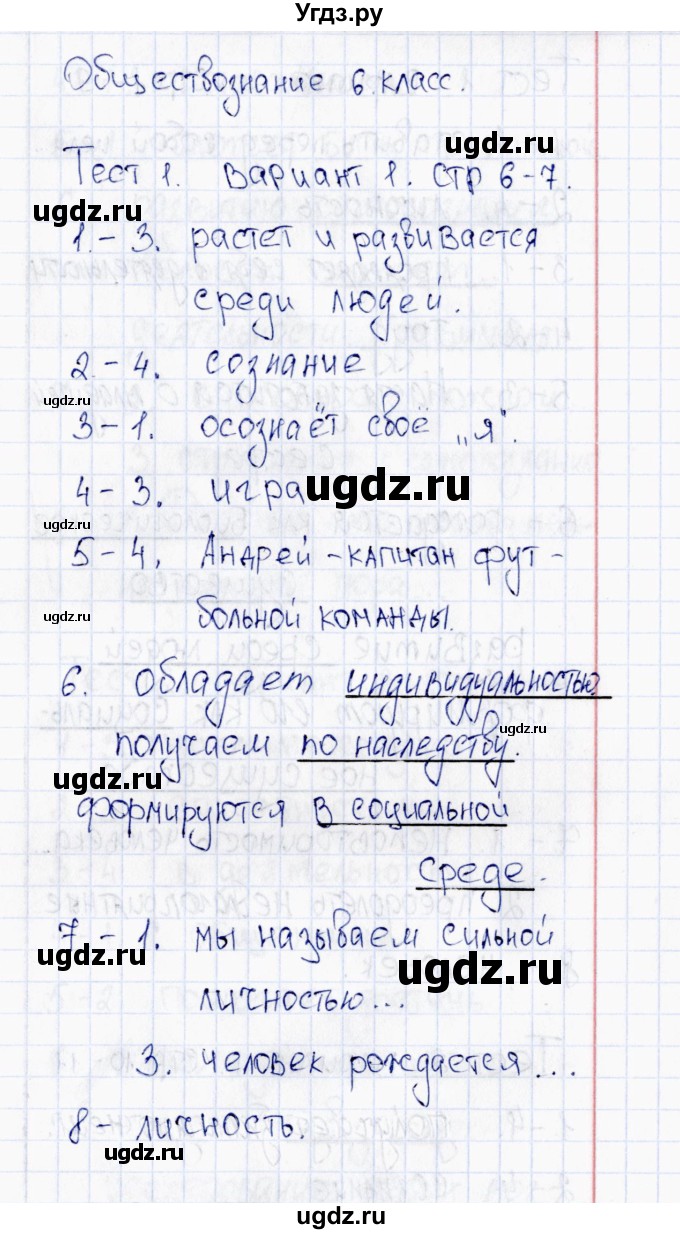 Угдз.ру
Обществознание 6 класс.
Тест 1. Вариант 1. стр 6-7.
ugdz.ru
1. - 3. растет и развивается
среди людей.
2 - 4. сознание
ugdz.ru
3 - 1. осознаёт своё „я".
4 - 3. игра
ugdz.ru
5 - 4. Андрей - капитан фут -
ugdz.ru
больной команды.
6. Обладает индивидуальностью.
ugdz.ru
получаем по наследству.
ugdz.ru
формируются в социальной
среде.
7 - 1. мы называем сильной
ugdz.ru
ugdz.ru
личностью...
3. человек рождается...
8 - личность.
ugdz.ru
ugdz.ru